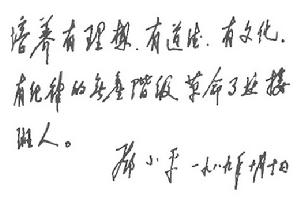 培养有理想、有道德、有文化、
有纪律的無產階級革命事业接
班人。
邓小平 一九八九年十月十日